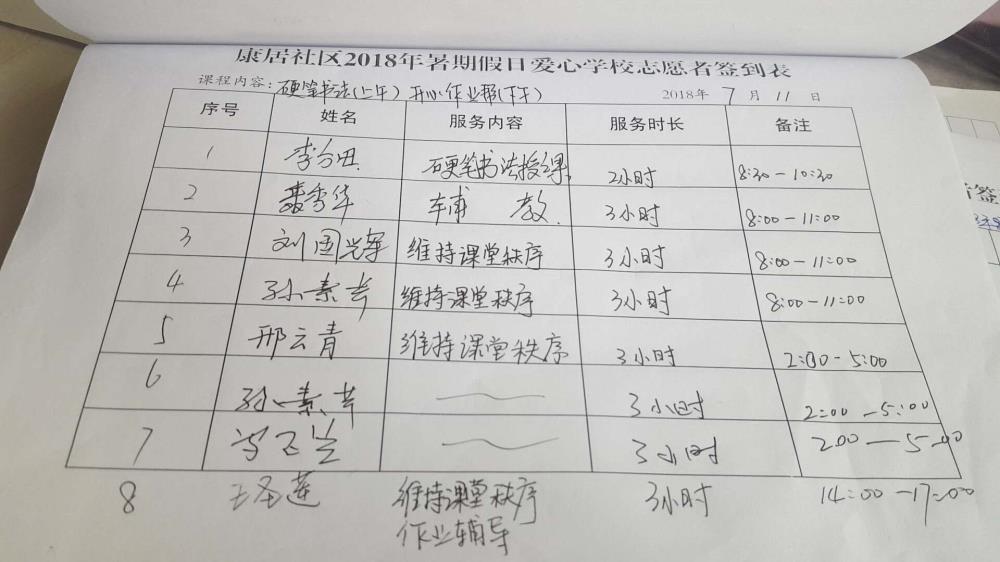 康居社区2018年暑期假日爱心学校志愿者签到表
课程内容：硬笔书法(上午) 开心作业帮(下午)
2018年 7 月 11 日
序号 姓名 服务内容 服务时长 备注
1 李 硬笔书法授课 2小时 8:30-10:30
2 聂秀华 辅 教 3小时 8:00-11:00
3 刘国光军 维持课堂秩序 3小时 8:00-11:00
4 孙素芳 维持课堂秩序 3小时 8:00-11:00
5 邢云青 维持课堂秩序 3小时 2:00-5:00
6 孙素芳 3小时 2:00-5:00
7 3小时 2:00-5:00
8 王圣莲 维持课堂秩序 3小时 14:00-17:00
作业辅导